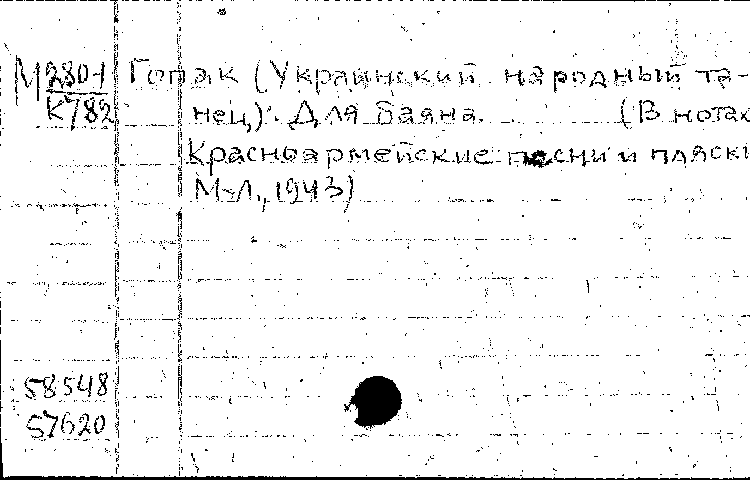 М 280-1 Гопак (Украинский народный та-
К782 нец). Для баяна. (В нотах
Красноармейские песни и пляски
М-Л., 1943)
58548
57620